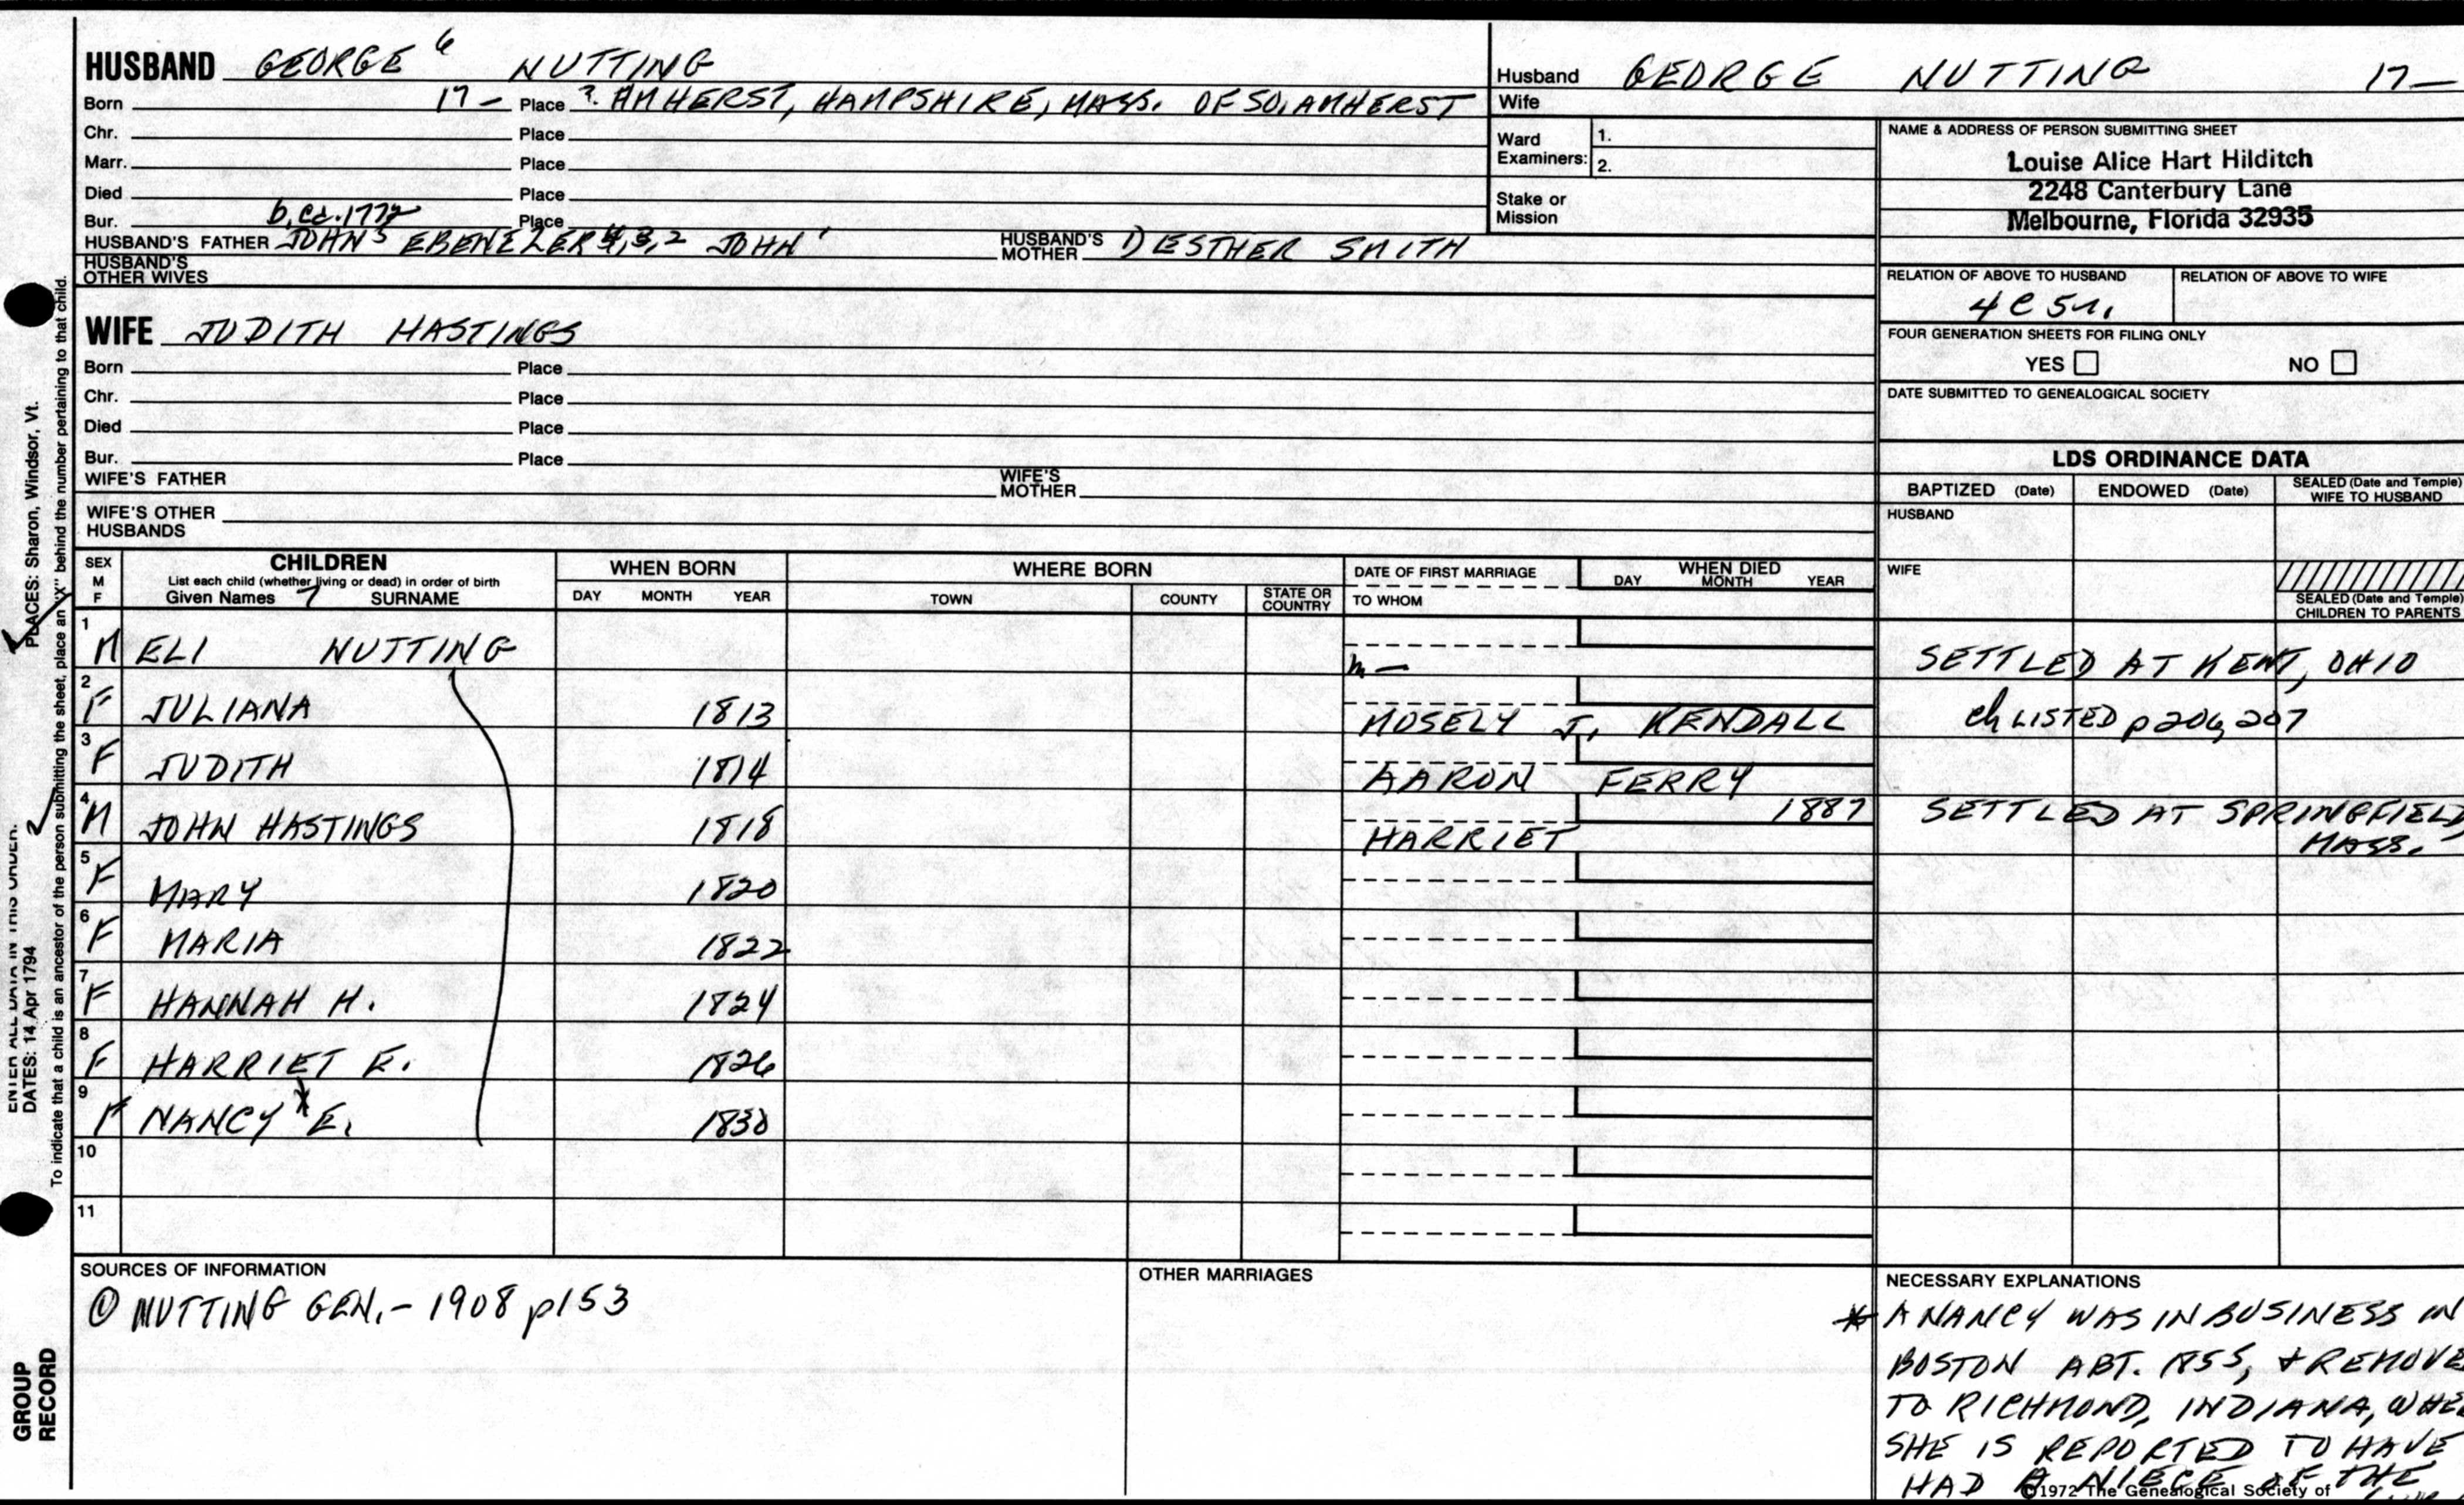 HUSBAND GEORGE 6 NUTTING
Born 17 – Place ? AMHERST, HAMPSHIRE, MASS. OF SO. AMHERST
Chr. Place
Marr. Place
Died Place
Bur. b. ca. Place
HUSBAND'S FATHER JOHN 5 EBENEZER 4,3,2 JOHN ' HUSBAND'S MOTHER 1) ESTHER SMITH
HUSBAND'S OTHER WIVES
WIFE JUDITH HASTINGS
Born Place
Chr. Place
Died Place
Bur. Place
WIFE'S FATHER WIFE'S MOTHER
WIFE'S OTHER HUSBANDS
Husband GEORGE NUTTING 17—
Wife
Ward Examiners: 1.
2.
Stake or Mission
NAME & ADDRESS OF PERSON SUBMITTING SHEET
Louise Alice Hart Hilditch
2248 Canterbury Lane
Melbourne, Florida 32935
RELATION OF ABOVE TO HUSBAND RELATION OF ABOVE TO WIFE
4 C 5 r.
FOUR GENERATION SHEETS FOR FILING ONLY
YES NO
DATE SUBMITTED TO GENEALOGICAL SOCIETY
LDS ORDINANCE DATA
BAPTIZED (Date) ENDOWED (Date) SEALED (Date and Temple) WIFE TO HUSBAND
HUSBAND
WIFE
SEALED (Date and Temple) CHILDREN TO PARENTS
SEX M F CHILDREN WHEN BORN WHERE BORN DATE OF FIRST MARRIAGE WHEN DIED
List each child (whether living or dead) in order of birth
Given Names 7 SURNAME DAY MONTH YEAR TOWN COUNTY STATE OR COUNTRY TO WHOM DAY MONTH YEAR
1 M ELI NUTTING m — SETTLED AT KENT, OHIO
2 F JULIANA 1813 MOSELY J. KENDALL ch LISTED p 206, 207
3 F JUDITH 1814 AARON FERRY
4 M JOHN HASTINGS 1818 HARRIET 1887 SETTLED AT SPRINGFIELD MASS.
5 F MARY 1820
6 F MARIA 1822
7 F HANNAH H. 1824
8 F HARRIET E. 1826
9 F NANCY * E. 1830
10
11
SOURCES OF INFORMATION
① NUTTING GEN. – 1908 p153
OTHER MARRIAGES
NECESSARY EXPLANATIONS
* A NANCY WAS IN BUSINESS IN
BOSTON ABT. 1855, & REMOVE
TO RICHMOND, INDIANA, WHE
SHE IS REPORTED TO HAVE
HAD A NIECE OF THE
©1972 The Genealogical Society of
PLACES: Sharon, Windsor, Vt.
To indicate that a child is an ancestor of the person submitting the sheet, place an "X" behind the number pertaining to that child.
ENTER ALL DATA IN THIS ORDER:
DATES: 14 Apr 1794
GROUP
RECORD